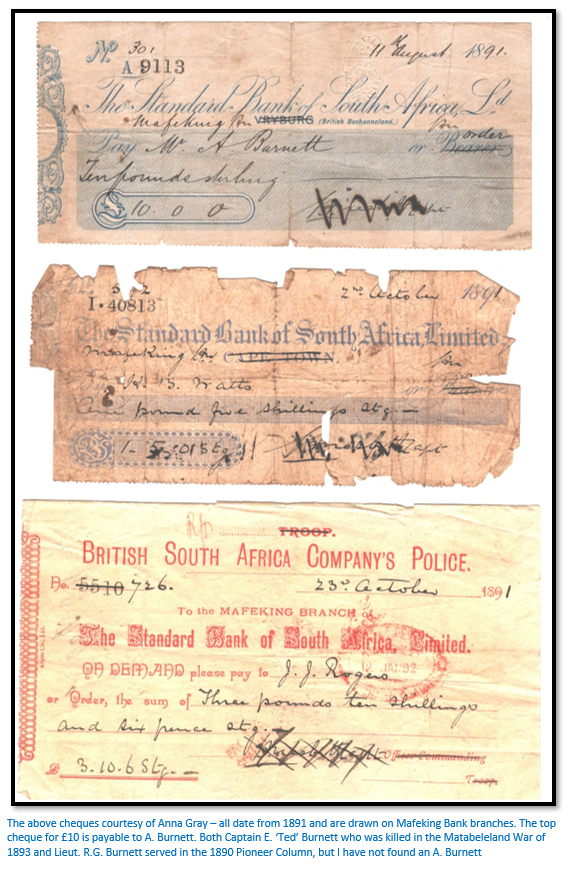 No 301
A 9113
11th August 1891.
The Standard Bank of South Africa, Ld
Mafeking Bn VRYBURG (British Bechuanaland.)
order
Pay Mr. A Burnett or Bearer
Ten pounds sterling
£ 10. 0 0
I· 40813
2nd October 1891
The Standard Bank of South Africa, Limited.
Mafeking Bn CAPE TOWN.
Watts
One pound five shillings stg. —
TROOP.
BRITISH SOUTH AFRICA COMPANY'S POLICE.
No. 5510 726. 23rd October 1891
To the MAFEKING BRANCH of
The Standard Bank of South Africa, Limited.
ON DEMAND please pay to J. J. Rogers
or Order, the sum of Three pounds ten shillings
and six pence stg. —
Officer Commanding
£ 3.10.6 Stg. — Troop.
The above cheques courtesy of Anna Gray – all date from 1891 and are drawn on Mafeking Bank branches. The top
cheque for £10 is payable to A. Burnett. Both Captain E. ‘Ted’ Burnett who was killed in the Matabeleland War of
1893 and Lieut. R.G. Burnett served in the 1890 Pioneer Column, but I have not found an A. Burnett